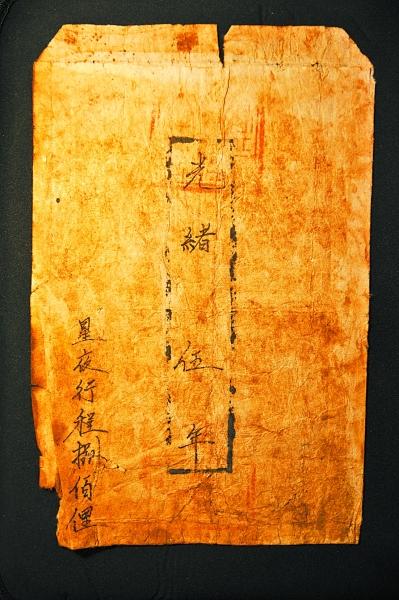 光緒伍年
星夜行程捌佰俚